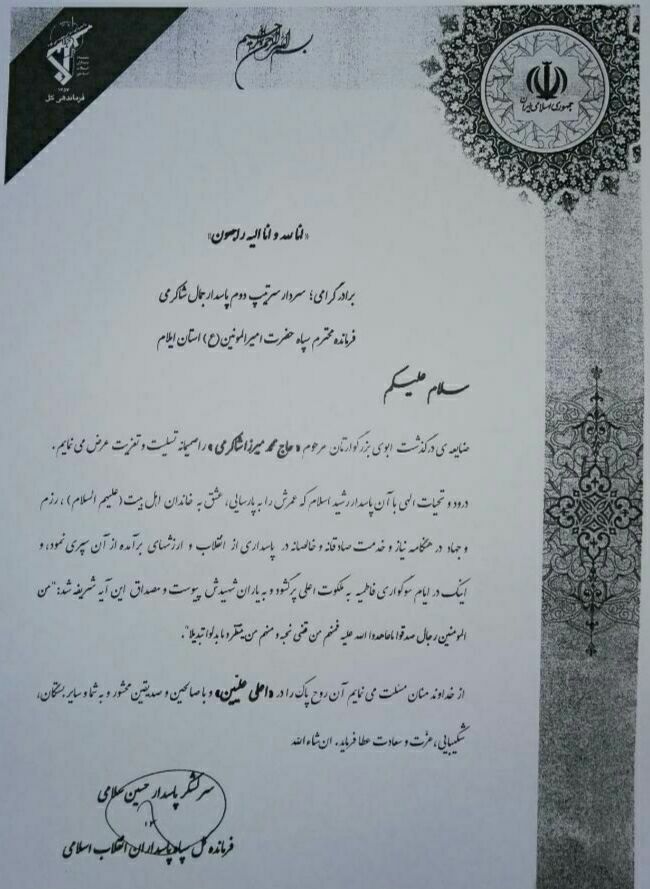 بسم الله الرحمن الرحیم
۱۳۵۷
فرماندهی کل
جمهوری اسلامی ایران
«انا لله و انا الیه راجعون»
برادر گرامی؛ سردار سرتیپ دوم پاسدار جمال شاکرمی
فرمانده محترم سپاه حضرت امیرالمونین (ع) استان ایلام
سلام علیکم
ضایعه ی درگذشت ابوی بزرگوارتان مرحوم «حاج محمد میرزا شاکرمی» را صمیمانه تسلیت و تعزیت عرض می نمایم.
درود و تحیات الهی با آن پاسدار رشید اسلام که عمرش را به پارسایی، عشق به خاندان اهل بیت (علیهم السلام)، رزم
و جهاد در هنگامه نیاز و خدمت صادقانه و خالصانه در پاسداری از انقلاب و ارزشهای برآمده از آن سپری نمود، و
اینک در ایام سوگواری فاطمیه به ملکوت اعلی پرگشود و به یاران شهیدش پیوست و مصداق این آیه شریفه شد: "من
المومنین رجال صدقوا ماعاهدوا الله علیه فمنهم من قضی نحبه و منهم من ینتظر و ما بدلوا تبدیلا".
از خداوند منان مسئلت می نمایم آن روح پاک را در «اعلی علیین» و با صالحین و صدیقین محشور و به شما و سایر بستگان،
شکیبایی، عزت و سعادت عطا فرماید. ان شاء الله
سرلشکر پاسدار حسین سلامی
فرمانده کل سپاه پاسداران انقلاب اسلامی